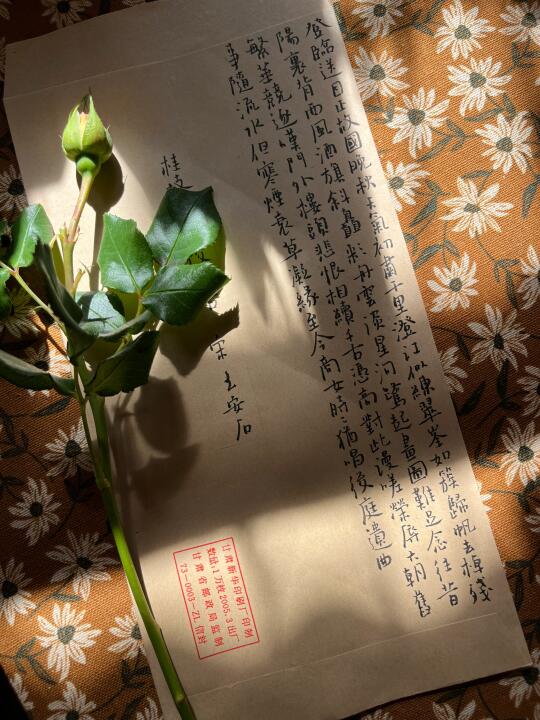 登臨送目正故國晚秋天氣初肅千里澄江似練翠峯如簇歸帆去棹殘
陽裏背西風酒旗斜矗彩舟雲淡星河鷺起畫圖難足念往昔
繁華競逐嘆門外樓頭悲恨相續千古憑高對此漫嗟榮辱六朝舊
事隨流水但寒煙衰草凝綠至今商女時〻猶唱後庭遺曲
桂枝 宋 王安石
甘肃新华印刷厂印制
数量:1万枚2005.3出厂
甘肃省邮政局监制
73-0003-2L 信封